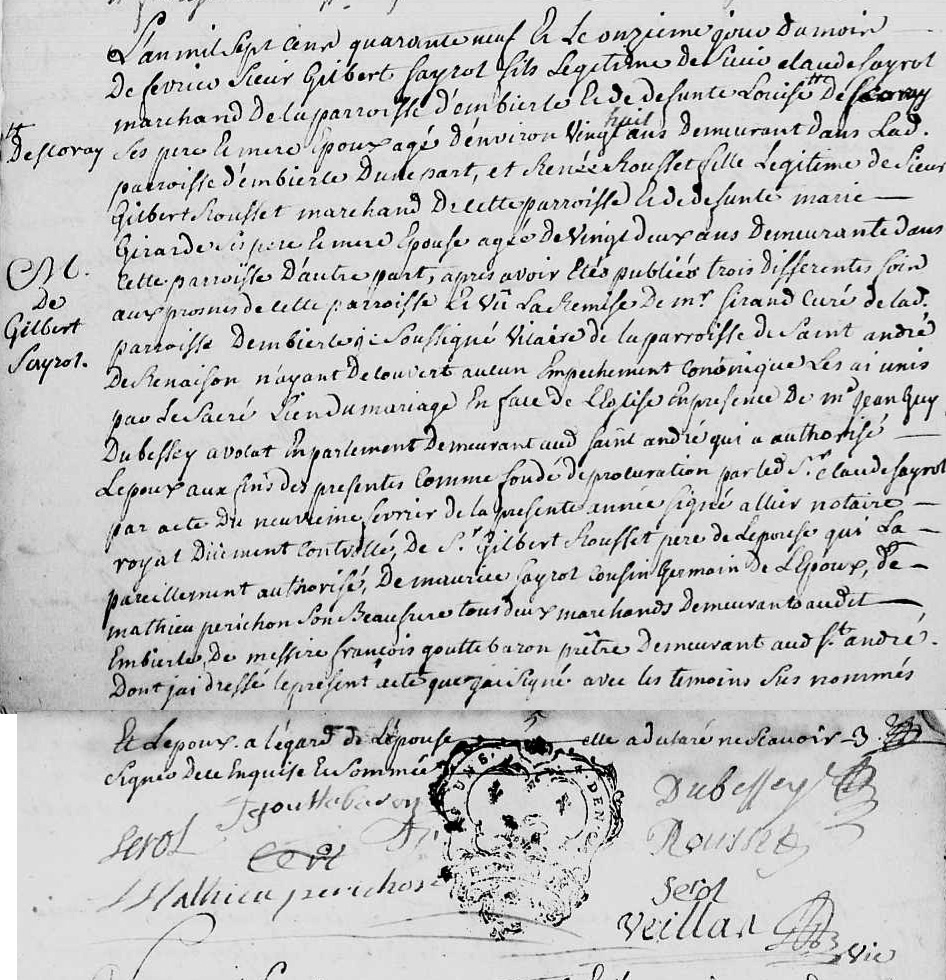 L'an mil sept cent quarante neuf Et Le onzieme jour du mois
De fevrier Sieur Gilbert Sayrol fils Legitime de Sieur claude Sayrol
marchand de la parroisse d'embierle Et de defunte Louise Desforay
tte
Descoray
Ses pere Et mere Epoux agé d'environ vingt huit ans Demeurant dans Lad.
parroisse d'embierle D'une part, et Renée Rousset fille Legitime de Sieur
Gilbert Rousset marchand De cette parroisse Et de defunte marie
Girarde Ses pere Et mere Epouse agée De vingt deux ans Demeurante dans
M.
De
Gilbert
Sayrol.
Cette parroisse D'autre part, apres avoir Etés publiés trois differentes fois
aux prosnes de cette parroisse Et vû La Remise De mr. Girand Curé de lad.
parroisse Dembierle je Soussigné vicaire de la parroisse de Saint andré
De Renaison n'ayant Decouvert aucun Empechement Canonique Les ai unis
par Le Sacré Lien du mariage En face de L'Eglise En presence De mr. Jean Guy
Dubessey avocat En parlement Demeurant aud Saint andré qui a authorisé
Lepoux aux fins des presentes Comme fondé de procuration par led Sr. claude Sayrol
par acte Du neuvieme fevrier de la presente année signé allier notaire
royal Dûement Controllé, De Sr. Gilbert Rousset pere de Lepouse qui La
pareillement authorisé, De maurice Sayrol Cousin Germain de L'Epoux, de
mathieu perichon Son Beaufrere tous deux marchands demeurants audit
Embierle, De messire françois goutte baron prêtre Demeurant aud St. andré.
Dont jai dressé le present acte que jai Signé avec les temoins Sus nommés
Et Lepoux. a légard de Lépouse elle a declaré ne Scavoir
Signer De ce Enquise Et Sommée
Jgouttebaron
Dubessey
Serol
Rousset
Mathieu perichon
Serol
Veillas
Vic